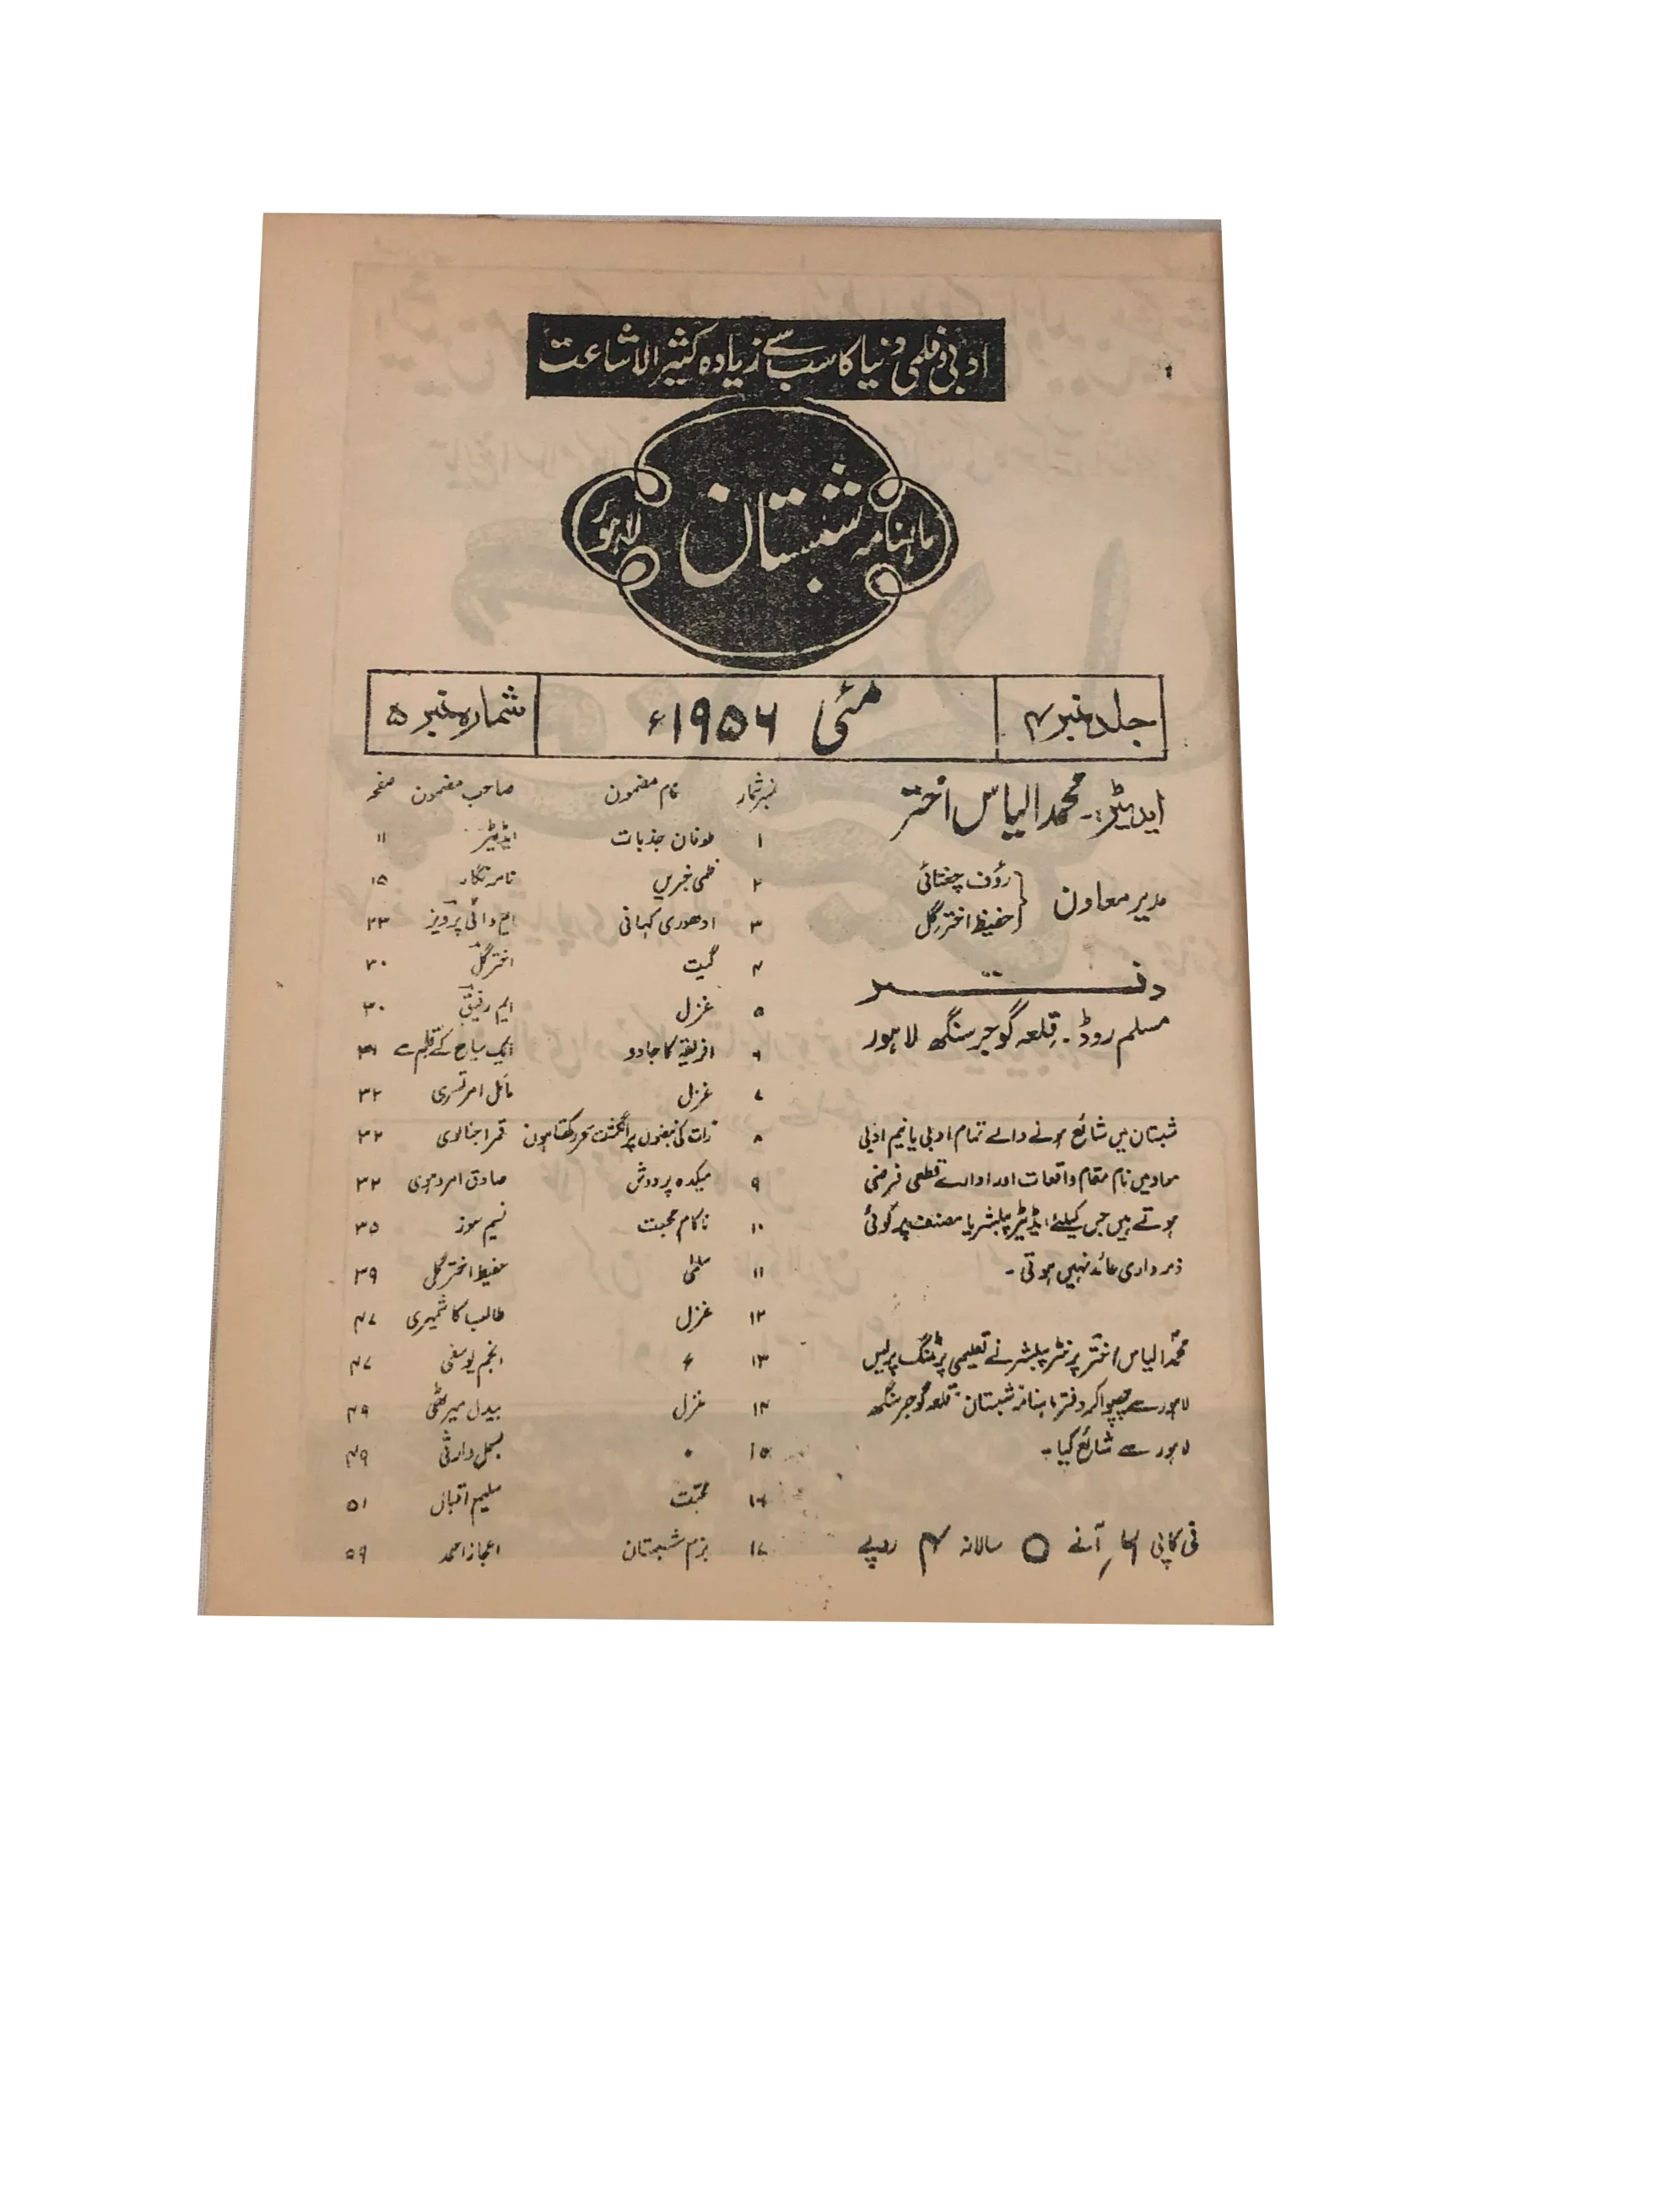 ادبی و فلمی دنیا کا سب سے زیادہ کثیر الاشاعت
ماہنامہ شبستان لاہور
جلد نمبر ۴ مئی ۱۹۵۶ء شمارہ نمبر ۵
ایڈیٹر:۔ محمد الیاس اختر
مدیر معاون رؤف چغتائی
حفیظ اختر گل
دفتر
مسلم روڈ۔ قلعہ گوجر سنگھ لاہور
شبستان میں شائع ہونے والے تمام ادبی یا نیم ادبی
مواد میں نام مقام واقعات اور ادارے قطعی فرضی
ہوتے ہیں جس کیلئے ایڈیٹر پبلشر یا مصنف پر کوئی
ذمہ داری عائد نہیں ہوتی۔
محمد الیاس اختر پرنٹر پبلشر نے تعلیمی پرنٹنگ پریس
لاہور سے چھپوا کر دفتر ماہنامہ شبستان قلعہ گوجر سنگھ
لاہور سے شائع کیا۔
فی کاپی ۶؍ آنے ○ سالانہ ۴ روپے
نمبر شمار نام مضمون صاحب مضمون صفحہ
۱ طوفان جذبات ایڈیٹر ۱۱
۲ فلمی خبریں نامہ نگار ۱۵
۳ ادھوری کہانی ایم وائی پرویز ۲۳
۴ گیت اختر گل ۳۰
۵ غزل ایم رفیق ۳۰
۶ افریقہ کا جادو ایک سیاح کے قلم سے ۳۱
۷ غزل مائل امرتسری ۳۲
۸ رات کی نبضوں پر انگشت سحر رکھتا ہوں قمر اجنالوی ۳۲
۹ میکدہ بردوش صادق امروہوی ۳۲
۱۰ ناکام محبت نسیم سوز ۳۵
۱۱ سلمٰی حفیظ اختر گل ۳۹
۱۲ غزل طالب کاشمیری ۴۷
۱۳ ء انجم یوسفی ۴۷
۱۴ غزل بیدل میرٹھی ۴۹
۱۵ بسمل وارثی ۴۹
۱۶ محبت سلیم اقبال ۵۱
۱۷ بزم شبستان اعجاز احمد ۵۹